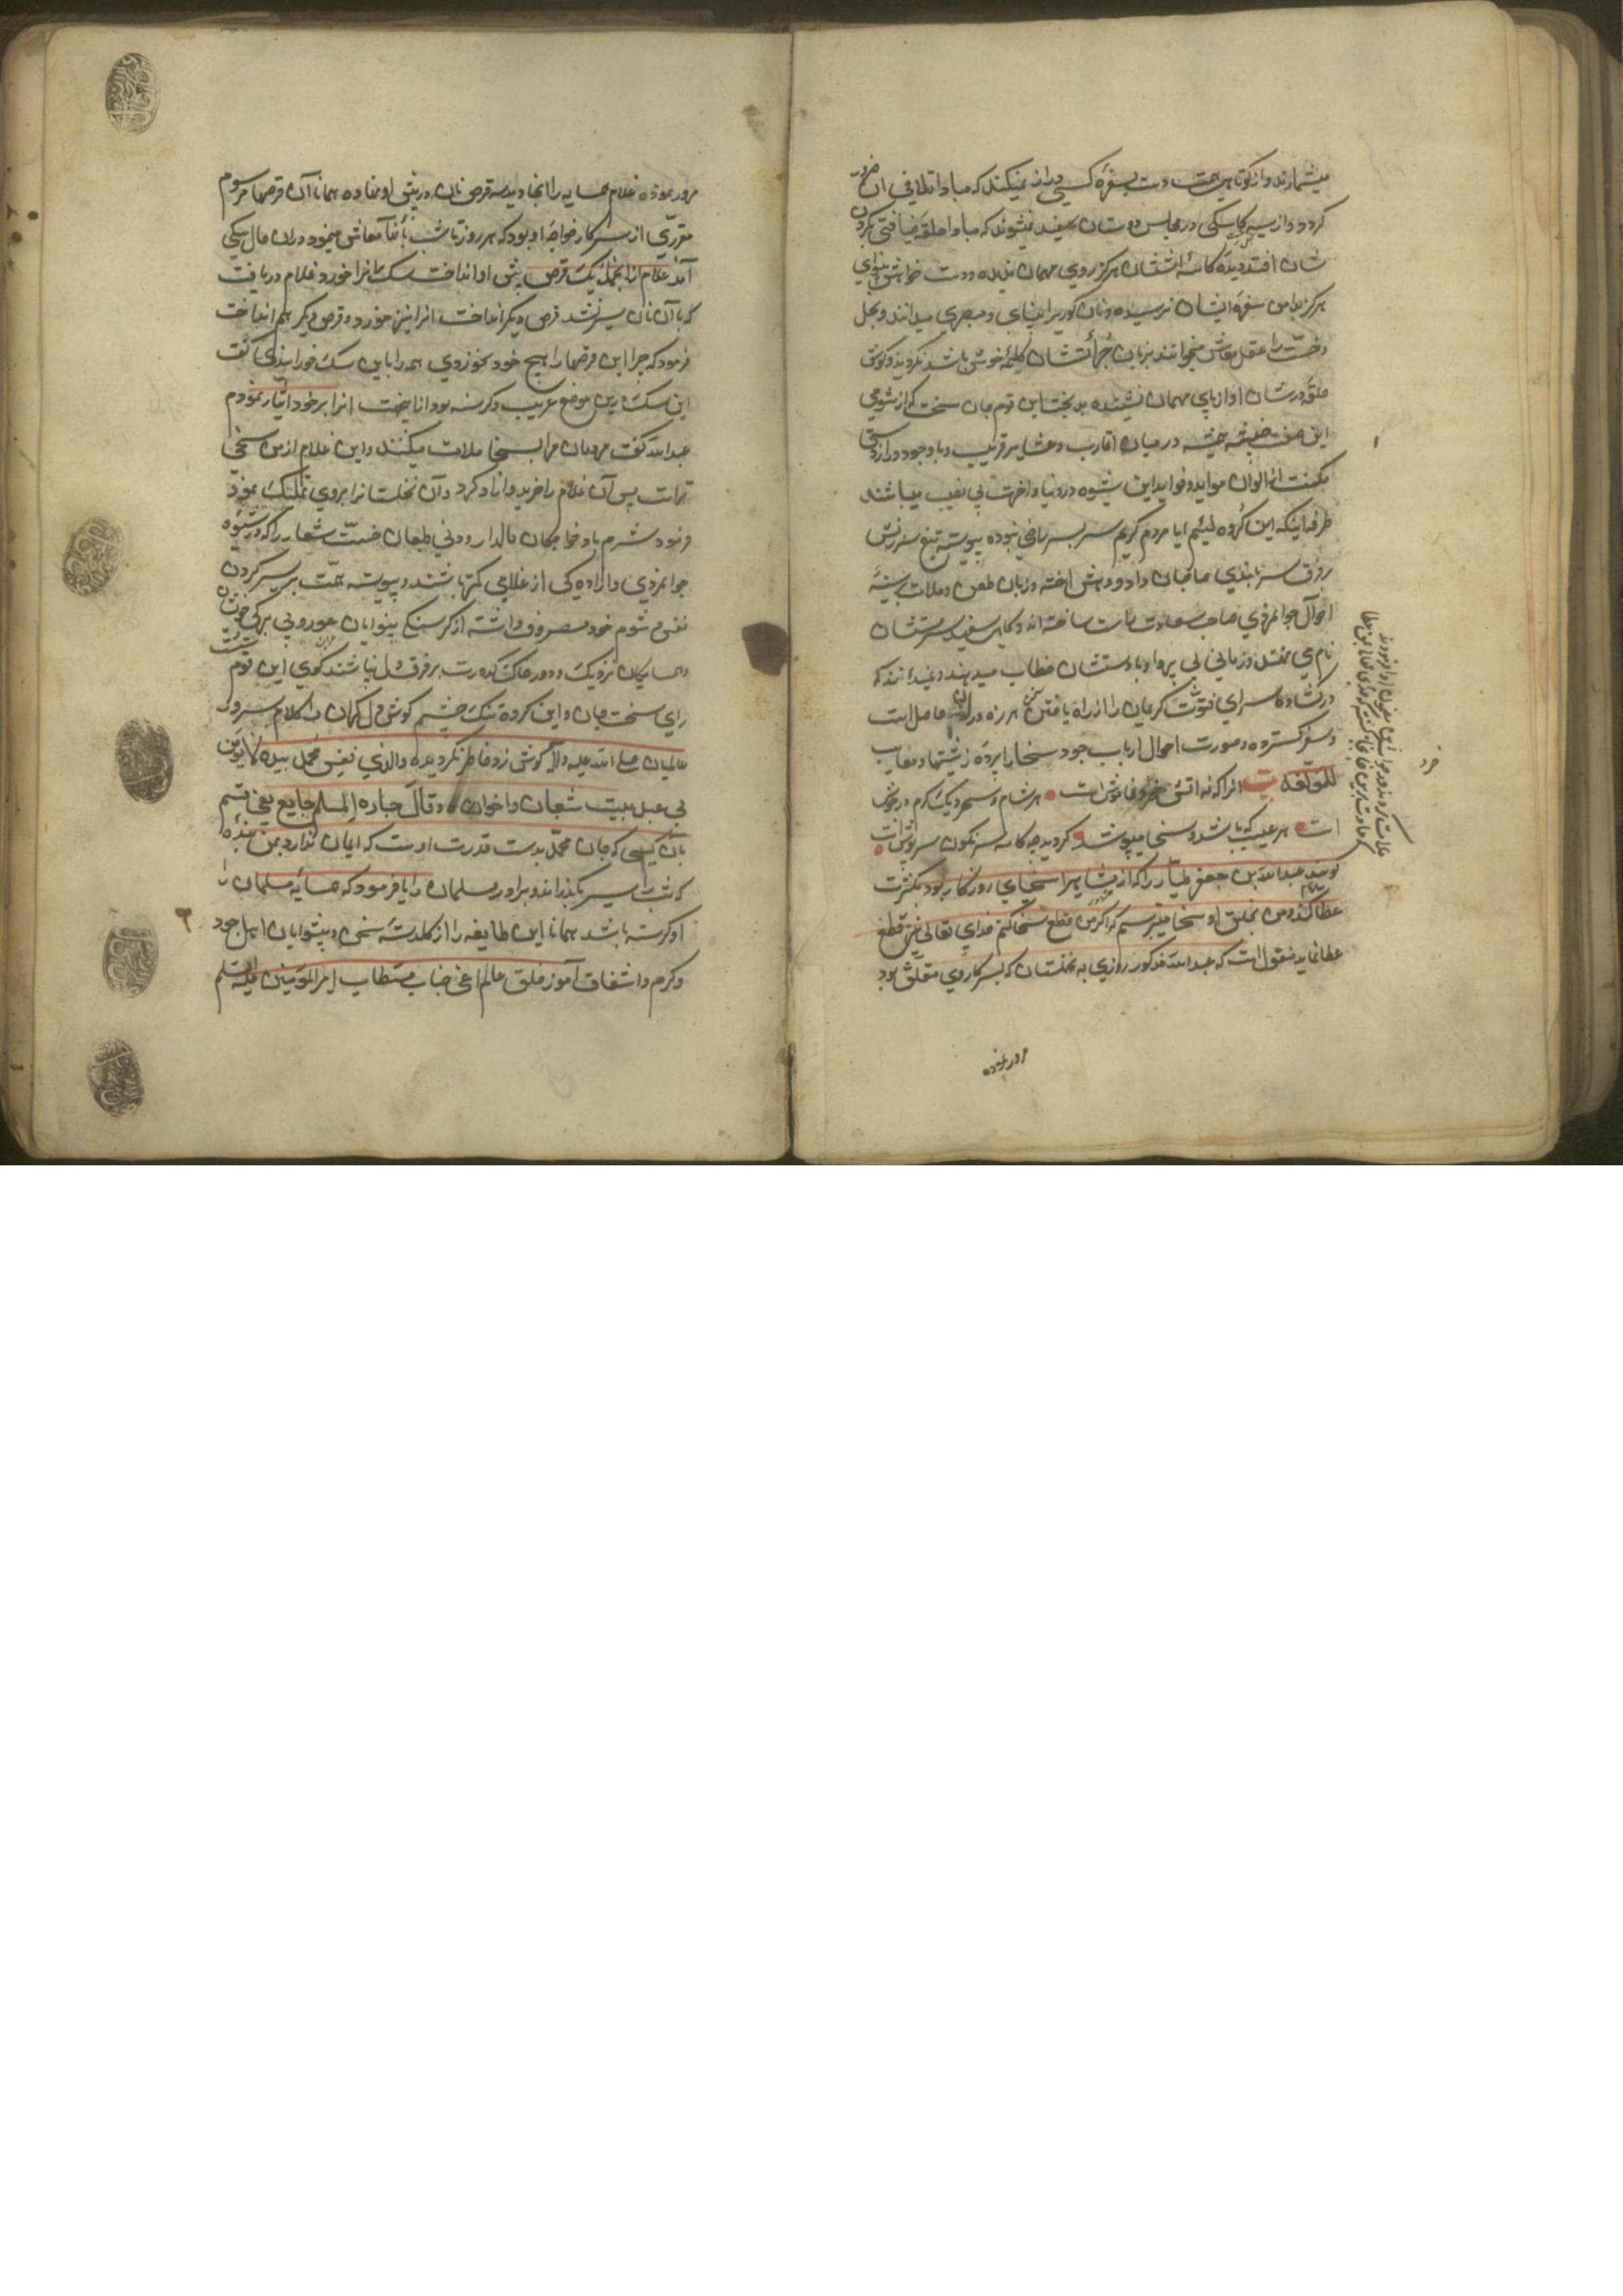 میشمارند و از کوتاهی همت دست بسفره کسی دراز نمیکنند که مبادا تلافی آن ضرور
گردد و از سیه کاسگی در مجلس دوستان سفید نمیشوند که مبادا حلقه ضیافتی بگردن
شان افتد دیده کاسه اششان هرگز روی مهمان ندیده و دست خواهش بینوای
هرگز بدامن سفره ایشان نرسیده و نان کور را بینای و مبصری میدانند و بخل
و خست را عقل معاش میخوانند بزبان شان کلمه خوش باشد نگردیده و گوش
حلقه درشان آواز پای مهمان نشنیده بدبخت این قوم جان سخت که از شومی
این صفت خبیثه در میان اقارب و عشایر قریب و با وجود درازدستی
مکنت از الوان موايد و فواید این شیوه در دنیا و آخرت بی نصیب میباشند
طرفه اینکه این گروه لئیم با مردم کریم سر بسر راضی نبوده پیوسته تیغ سرزنش
بر فرق سربلندی صاحبان داد و دهش آخته و زبان طعن و ملامت بر سینه
احوال جوانمردی صاحب سعادت راست ساخته اند و کاهی سفید سرستشان
نام می نهند و زمانی بی پروا و بادستشان خطاب میدهند و نمیدانند که
در گشاده سرای فتوت کریمان را از راه یافتن هرزه درایان حاصل است
و سفره گسترده صورت احوال ارباب جود و سخا را پرده زشتیها و معایب
للمؤلفه بیت آنرا که نه آتش خروش است هر شام و سحر دیگ کرم در جوش
است هر عیب که باشد و سخا میپوشد گردید چه کاسه سرنگون سرپوش است
گویند عبدالله بن جعفر طیار را که از مشاهیر اسخیای روزگار بود بکثرت
عطا گفت من بخلق او سخا میترسم که اگر من قطع سخا کنم خدای تعالی نیز قطع
عطا نماید منقول است که عبدالله مذکور روزی به نخلستان که بسرکار وی متعلق بود
مرور نموده
مرور نموده غلام همسایه را آنجا دید سه قرص نان در پیش او نهاده همانا آن قرصها مرسوم
مقرری از سرکار خواجه او بود که هر روز تا شب بآنها معاش مینمود در آن حال سگی
آمد غلام از آنجمله یک قرص پیش او انداخت سگ آنرا خورد غلام دریافت
که با آن نان سیر نشد قرص دیگر انداخت آنرا نیز خورد و قرص دیگر هم انداخت
فرمود که چرا این قرصها را هیچ خود نخوردی همه را باین سگ خورانیدی گفت
این سگ درین موضع غریب و گرسنه بود از اینجهت آنرا بر خود ایثار نمودم
عبدالله گفت مردمان مرا بسخا ملامت میکنند و این غلام از من سخی
تر است پس آن غلام را خرید و آزاد کرد و آن نخلستان را بروی تملیک نمود
فزود شرم باد خواجگان مالدار و دنی طبعان خست شعار را که در شیوه
جوانمردی و آزاده گی از غلامی کمتر باشند و پیوسته همت بر سیر کردن
نفس شوم خود مصروف داشته از گرسنگی بینوایان عور و بی برگی خویشان
و همسایگان نزدیک و دور خاک کدورت بر فرق دل نپاشند گوی این قوم سست
رای سخت جان و این گروه تنگ چشم گوش دل گران را کلام سرور
عالمیان صلی الله علیه و آله گوش زد خاطر نگردیده والذی نفس محمد بیده لا یؤمن
بی عبد یبیت شبعان و اخوان و قال جاره المسلم جایع یعنی قسم
بآن کسی که جان محمد بدست قدرت اوست که ایمان ندارد بمن بنده
که شب را سیر بگذراند و برادر مسلمان را یا فرمود که همسایه مسلمان را
او گرسنه باشد همانا این طایفه را از گلدسته سخی و پیشوایان اهل جود
و کرم و اشفاق آموز خلق عالم اعنی جناب مستطاب امیر المؤمنین علیه السلم